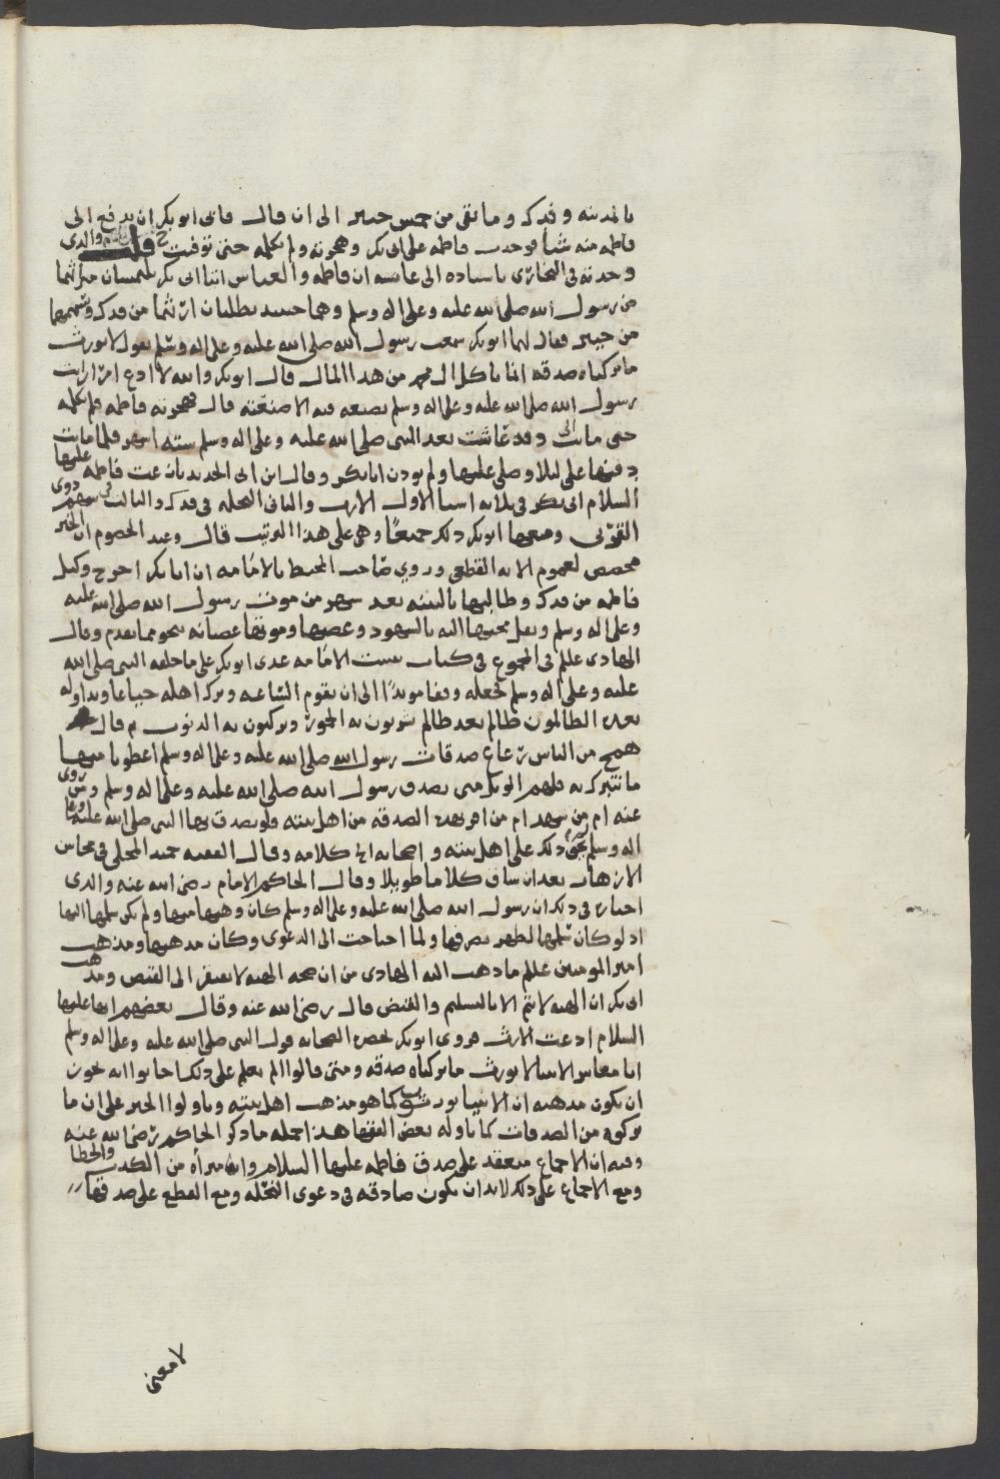 بالمدينه وفدك وما بقي من خمس خيبر الى ان قال فابى ابو بكر ان يدفع الى
فاطمه منه شيا فوجدت فاطمه على ابى بكر وهجرته ولم تكلمه حتى توفيت قلت والذى
وجدته في البخارى باسناده الى عايشه ان فاطمه والعباس اتيا ابى بكر يلتمسان ميراثهما
من رسول الله صلى الله عليه وعلى اله وسلم وهما حينيد يطلبان ارثهما من فدك وسهمهما
من خيبر فقال لهما ابو بكر سمعت رسول الله صلى الله عليه وعلى اله وسلم يقول لا نورث
ما تركناه صدقه انما ياكل ال محمد من هذا المال قال ابو بكر والله لا ادع امرا رايت
رسول الله صلى الله عليه وعلى اله وسلم يصنعه فيه الا صنعته قال فهجرته فاطمه فلم تكلمه
حتى ماتت وقد عاشت بعد النبى صلى الله عليه وعلى اله وسلم سته اشهر فلما ماتت
دفنها على ليلا وصلى عليها ولم يوذن ابا بكر وقال ابن ابى الحديد نازعت فاطمه عليها
السلام ابى بكر في ثلاثه اشيا الاول الارث والثاني النحله في فدك والثالث في سهم ذوى
القربى ومنعها ابو بكر ذلك جميعا وهى على هذا الترتيب قال وعند الخصوم ان الخبر
مخصص لعموم الايه القطعى وروى صاحب المحيط بالامامه ان ابا بكر اخرج وكيل
فاطمه من فدك وطالبها بالبينه بعد شهر من موت رسول الله صلى الله عليه
وعلى اله وسلم ونقل مجيها اليه بالشهود وغضبها وموتها غضبانه بنحو مما تقدم وقال
الهادى علم في المجموع في كتاب تثبيت الامامه عدى ابو بكر على ما خلفه النبى صلى الله
عليه وعلى اله وسلم فجعله وقفا موبدا الى ان تقوم الساعه وترك اهله جياعا وتداوله
بعده الظالمون ظالم بعد ظالم يشربون به الخمور ويركبون به الذنوب ثم قال
همج من الناس رعاع صدقات رسول الله صلى الله عليه وعلى اله وسلم اعطونا منها
ما نتبرك به فلهم الويل متى تصدق رسول الله صلى الله عليه وعلى اله وسلم ومن روى
عنه ام من شهد ام من امر بهذه الصدقه من اهل بيته ولو تصدق بها النبى صلى الله عليه وعلى
اله وسلم ذلك على اهل بيته واصحابه الى كلامه وقال الفقيه حميد المحلى في محاسن
الازهار بعد ان ساق كلاما طويلا وقال الحاكم الامام رضى الله عنه والذى
اختاره في ذلك ان رسول الله صلى الله عليه وعلى اله وسلم كان وهبها منها ولم يكن سلمها اليها
اذ لو كان سلمها لظهر تصرفها ولما احتاجت الى الدعوى وكان مذهبها ومذهب
امير المومنين علم ما ذهب اليه الهادى من ان صحه الهبه لا تفتقر الى القبض ومذهب
ابى بكر ان الهبه لا تتم الا بالتسليم والقبض قال رضى الله عنه وقال بعضهم انها عليها
السلام ادعت الارث فروى ابو بكر بحضره الصحابه قول النبى صلى الله عليه وعلى اله وسلم
انا معاشر الانبيا لا نورث ما تركناه صدقه ومتى قالوا لم يعلم على ذلك اجابوا انه يجوز
ان يكون مذهبه ان الانبيا تورث كما هو مذهب اهل بيته وتاولوا الخبر على ان ما
تركوه من الصدقات كما تاوله بعض الفقها هذا جمله ما ذكره الحاكم رضى الله عنه
وفيه ان الاجماع منعقد على صدق فاطمه عليها السلام وانها مبراه من الكذب والخطا
ومع الاجماع على ذلك لابد ان تكون صادقه في دعوى النحله ومع القطع على صدقها
لا معنى